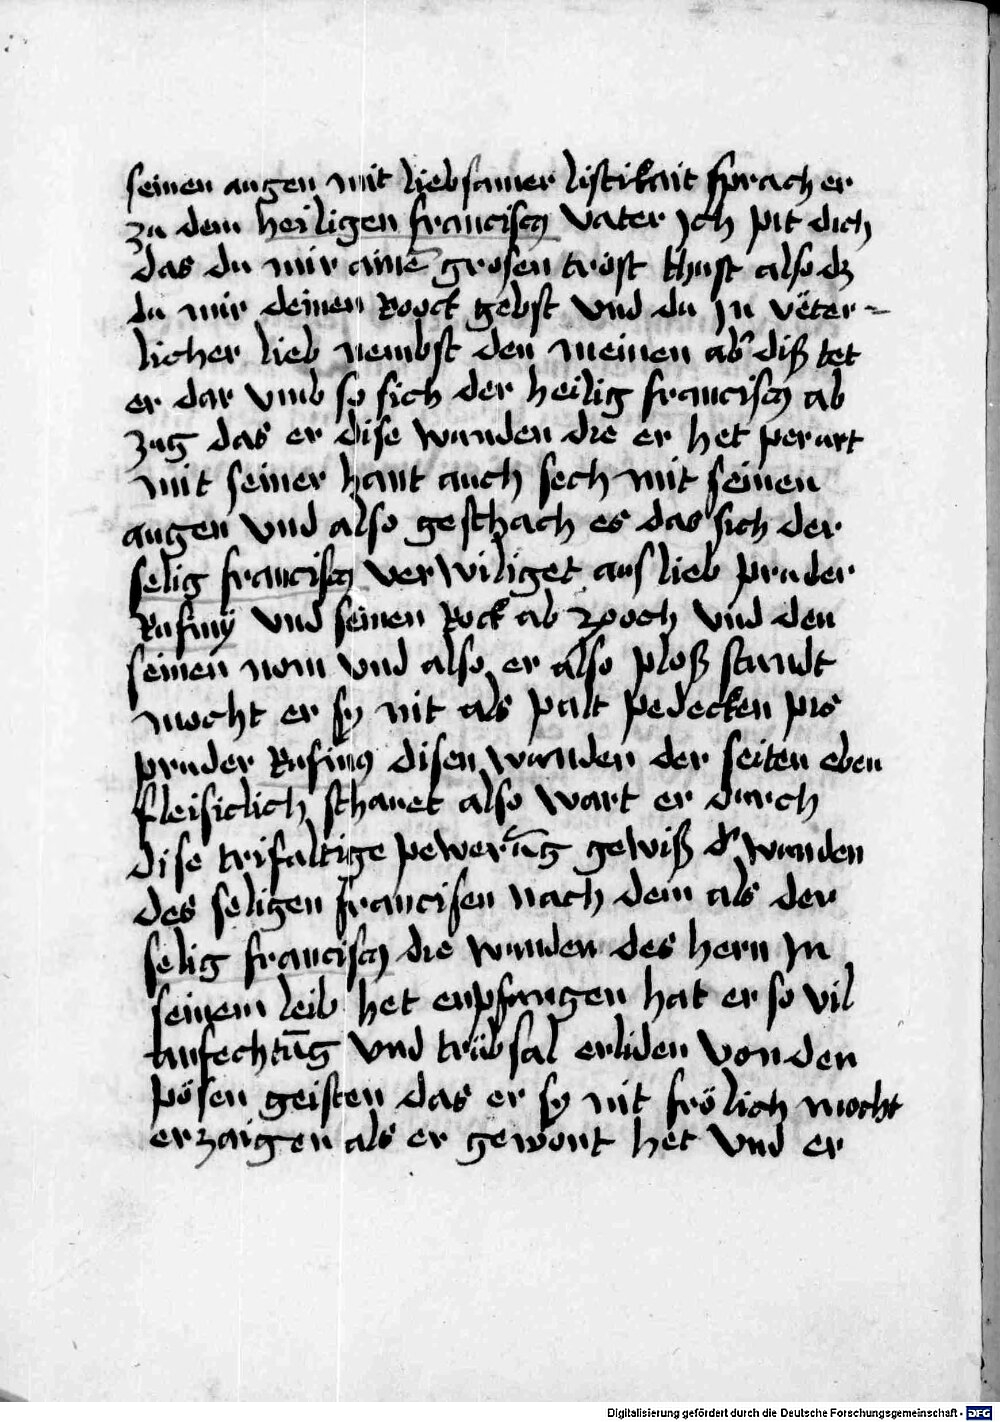 seinen augen mit liebsamer listikait sprach er
zu dem heiligen franciscꝯ vater jch pit dich
das du mir ainē grosen trost thust also dz
du mir deinen Roock gebst vnd du jn väter-
licher lieb nembst den meinen ab' diß tet
er dar vmb so sich der heilig franciscꝯ ab
zug das er dise wunden die er het perürt
mit seiner hant auch sech mit seinen
augen vnd also geschach es das sich der
selig franciscꝯ verwiliget aus lieb pruder
Rufinÿ vnd seinen Rock ab zooch vnd den
seinen nom vnd also er also ploß standt
mocht er sy nit als palt pedecken pis
pruder Rufinꝯ disen wunden der seiten eben
fleisiclich schauet also wart er durch
dise trifaltige pewerūg gewiß d' wunden
des seligen francisen nach dem als der
selig franciscꝯ die wunden des hern jn
seinem leib het enpfangen hat er so vil
anfechtūg vnd trübsal erliden von den
pösen geisten das er sy nit frölich mocht
erzaigen als er gewont het vnd er
Digitalisierung gefördert durch die Deutsche Forschungsgemeinschaft - DFG